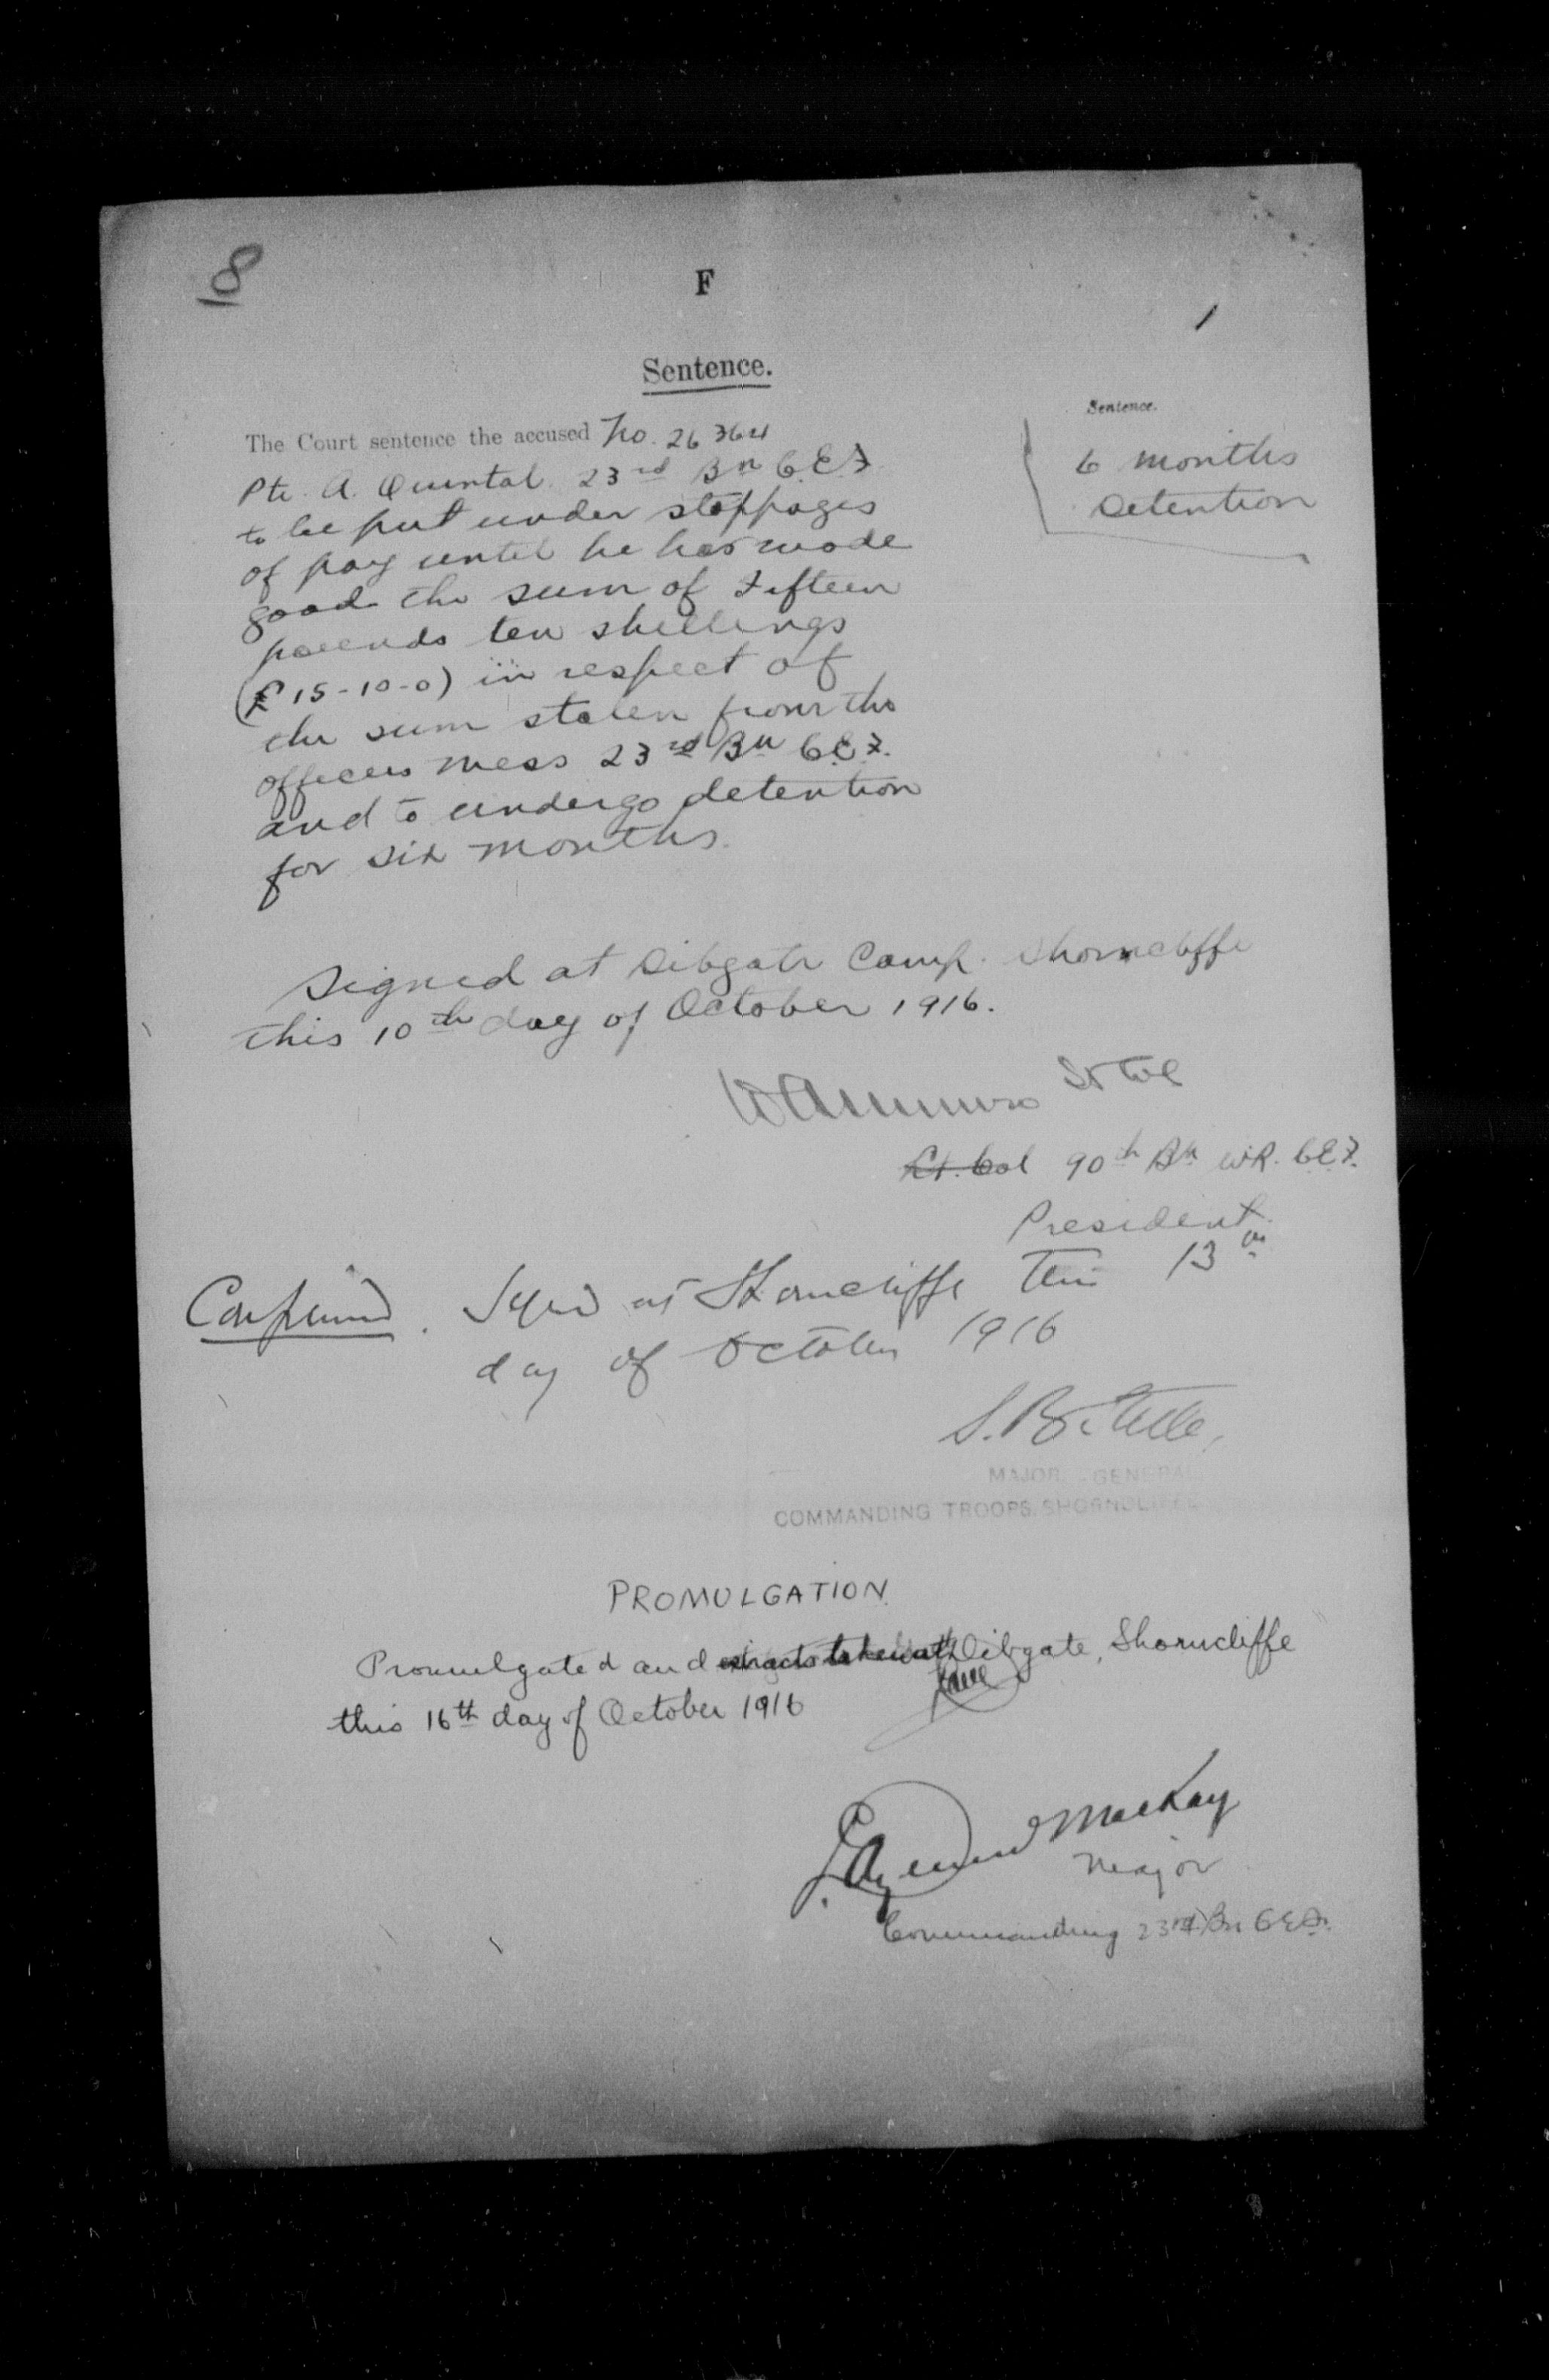 18
F
1
Sentence.
The Court sentence the accused No. 26364
Pte. A. Quintal. 23rd Bn C.E.F.
to be put under stoppages
of pay until he has made
good the sum of Fifteen
pounds ten shillings
(£15-10-0) in respect of
the sum stolen from the
officers mess 23rd Bn C.E.F.
and to undergo detention
for six months.
Sentence.
6 months
detention
Signed at Dibgate Camp. Shorncliffe
this 10th day of October 1916.
Lt Col
Lt. Col 90th Bn W.R. C.E.F.
President.
Confirmed. Signed at Shorncliffe this 13th
day of October 1916
S. B. Steele,
MAJOR - GENERAL
COMMANDING TROOPS. SHORNCLIFFE
PROMULGATION.
Promulgated and extracts taken at Dibgate, Shorncliffe
this 16th day of October 1916
MacKay
Major
Commanding 23rd Bn C.E.F.